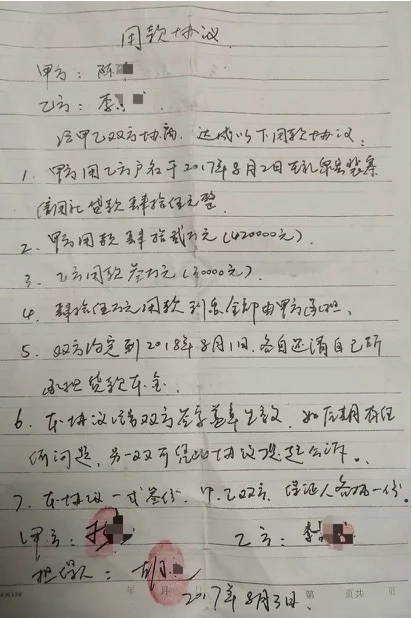 用款协议
甲方：陈
乙方：李
经甲乙双方协商，达成以下用款协议：
1、甲方用乙方户名于2017年8月2日在礼泉县
信用社贷款肆拾伍万元整
2、甲方用款肆拾贰万元（420000元）。
3、乙方用款叁万元（30000元）
4、肆拾伍万元用款利息全部由甲方承担、
5、双方约定到2018年8月1日，各自还清自己所
承担贷款本金、
6、本协议经双方签字盖章生效，如后期有任
何问题，另一方可凭此协议提起公诉。
7、本协议一式叁份，甲、乙双方、保证人各持一份。
甲方： 乙方：李
担保人：
年 月 第 页共 页
2017年8月3日、